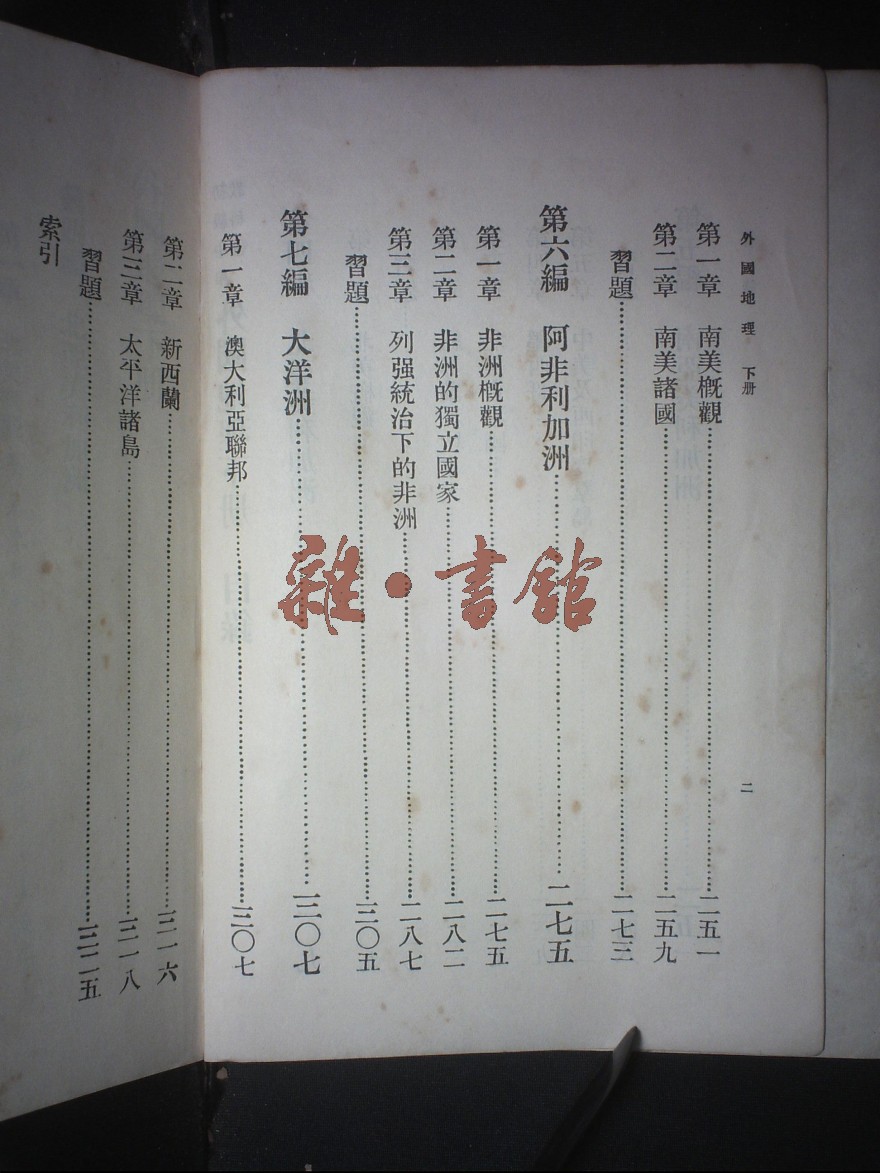 外國地理 下册
二
第一章 南美概觀……二五一
第二章 南美諸國……二五九
習題……二七三
第六編 阿非利加洲……二七五
第一章 非洲概觀……二七五
第二章 非洲的獨立國家……二八二
第三章 列强統治下的非洲……二八七
習題……三〇五
第七編 大洋洲……三〇七
第一章 澳大利亞聯邦……三〇七
第二章 新西蘭……三一六
第三章 太平洋諸島……三一八
習題……三二五
索引
雜·書館